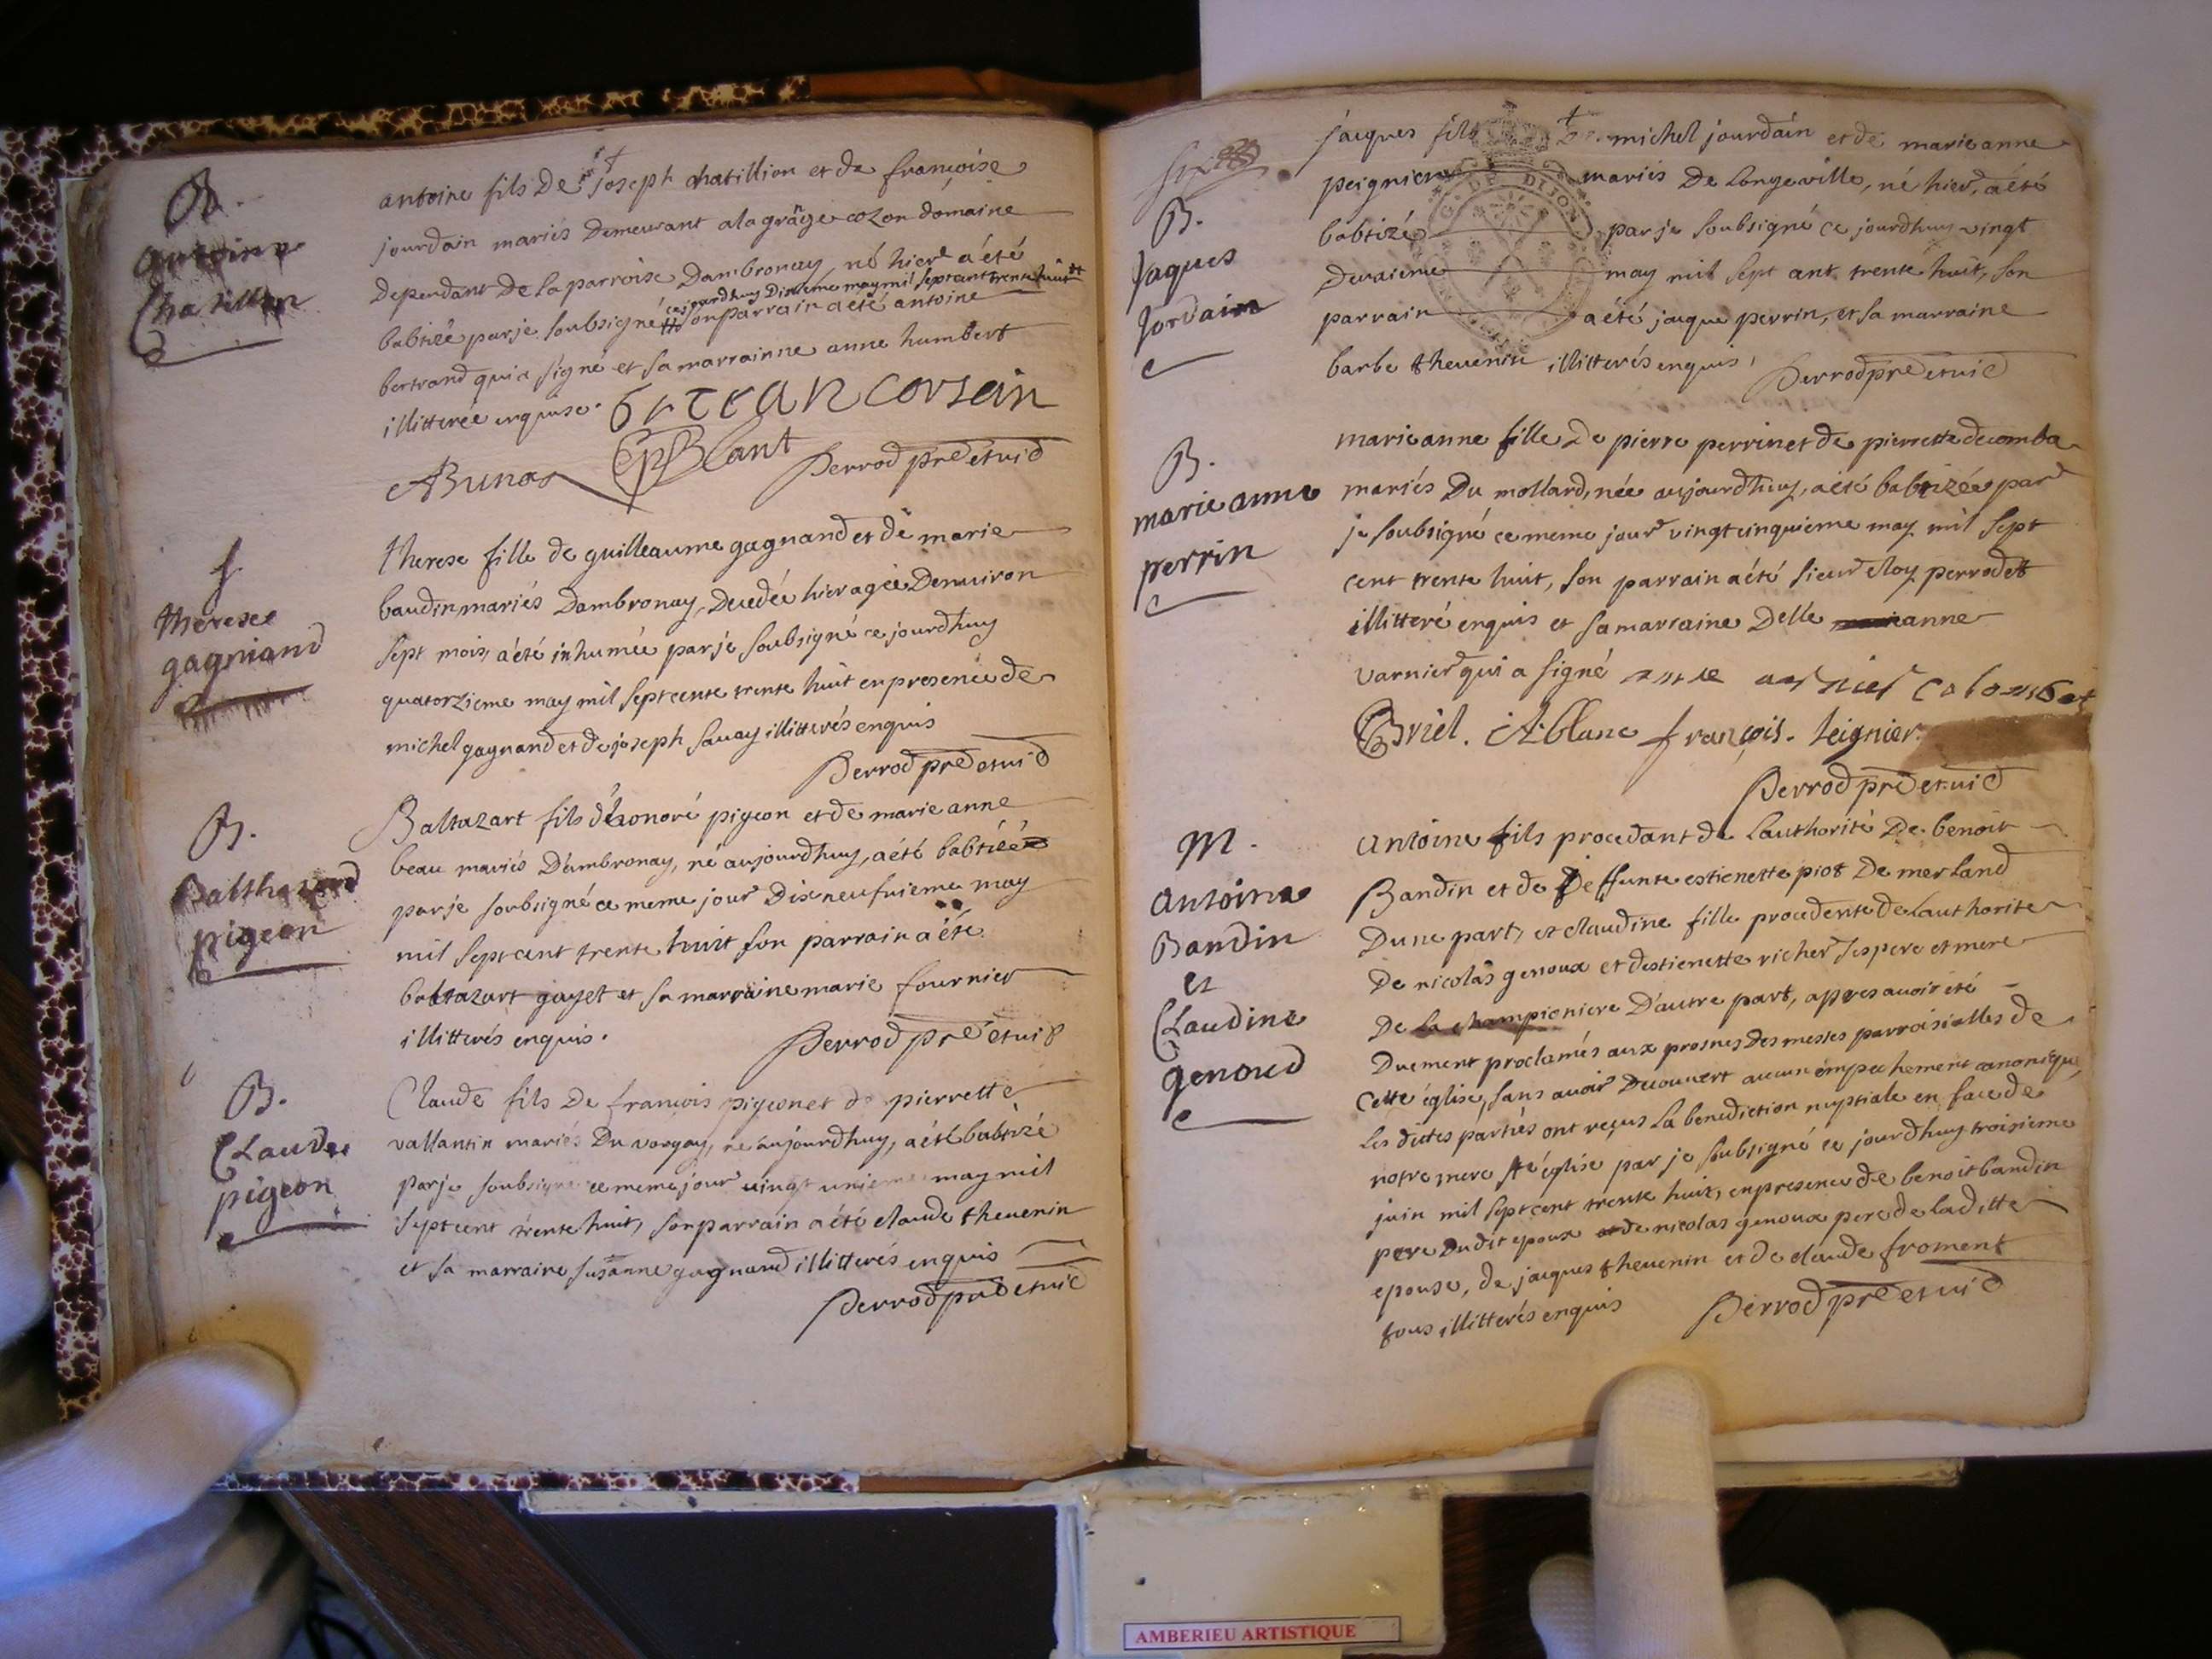 B.
Antoine
Chatillon
antoine fils De joseph chatillion et de françoise
jourdain mariés Demeurant a la grange cozon domaine
Dependant De la parroise Dambronay, né hier a été
cejourdhuy Dixieme may mil sept cent trente huit
babtizé par je soubsigné son parrain a été antoine
bertrand qui a signé et sa marrainne anne humbert
illitterée enquise.
Perrod pre et vic
therese gagniand
therese fille de guilleaume gagnand et de marie
baudin, mariés Dambronay, Decedée hier agée Denuiron
sept mois, a été inhumée par je soubsigné ce jourdhuy
quatorzieme may mil sept cente trente huit en presence de
michel gagnand et de joseph sauay illitterés enquis
Perrod pre et vic
B.
Balthazard
pigeon
Baltazart fils d'honoré pigeon et de marie anne
beau mariés D'ambronay, né aujourdhuy, a été babtizé
par je soubsigné ce meme jour Dixneufuieme may
mil sept cent trente huit son parrain a été
baltazart gayet et sa marraine marie fournier
illitterés enquis.
Perrod pre et vic
B.
Claude
pigeon
Claude fils De françois pigeon et de pierrette
vallantin mariés Du vorgay, né aujourdhuy, a été babtizé
par je soubsigné ce meme jour uingt unieme may mil
sept cent trente huit, son parrain a été claude theuenin
et sa marraine susanne gagnand illitterés enquis
Perrod pre et vic
B.
Jaques
Jordain
jacques fils De michel jourdain et de marie anne
peignier mariés De Longeville, né hier, a été
babtizé par je soubsigné ce jourdhuy vingt
deuxieme may mil sept cent trente huit, son
parrain a été jacque perrin, et sa marraine
barbe theuenin illitterés enquis,
Perrod pre et vic
DE DIJON
B.
marie anne
perrin
marie anne fille De pierre perrin et de pierrette decomba
mariés Du mollard, née aujourdhuy, a été babtizée par
je soubsigné ce meme jour vingt cinquieme may mil sept
cent trente huit, son parrain a été sieur eloy perrodet
illitteré enquis et sa marraine Delle anne
varnier qui a signé
Briel. A blanc françois. teignier
Perrod pre et vic
M.
Antoine
Baudin
et
Claudine
genoud
antoine fils procedant de Lauthorité De benoit
Baudin et de Deffunte estienette piot De merland
Dune part, et claudine fille procedente de lauthorite
De nicolas genoux et destienette richer ses pere et mere
De la championiere D'autre part, apres auoir été
Duement proclamés aux prosnes Des messes parroisialles de
cette église, sans auoir Decouuert aucun empechement canonique,
les dittes parties ont reçus La benediction nuptiale en face de
notre mere ste église par je soubsigné ce jourdhuy troisieme
juin mil sept cent trente huit, en presence de benoit baudin
pere Dudit epoux de nicolas genoux pere de laditte
epouse, de jacques theuenin et de claude froment
tous illitterés enquis
Perrod pre et vic
AMBERIEU ARTISTIQUE